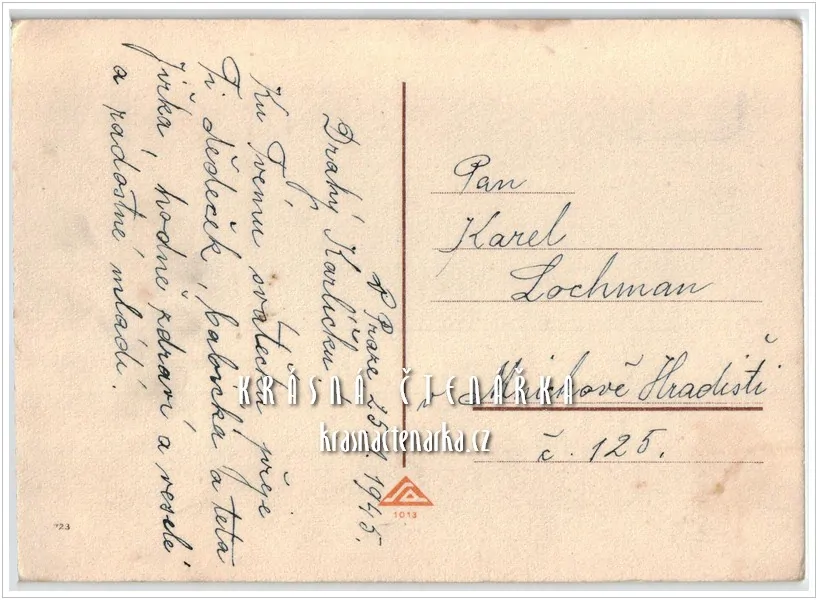 V Praze 25.1. 1945.
Drahý Karlíčku!
Ku Tvému svátečku přeje
Ti dědeček, babička a teta
Jirka, hodně zdraví a veselé
a radostné mládí.
Pan
Karel
Lochman
v Mnichově Hradišti
č. 125.
KRÁSNÁ ČTENÁŘKA
krasnactenarka.cz
1013
723